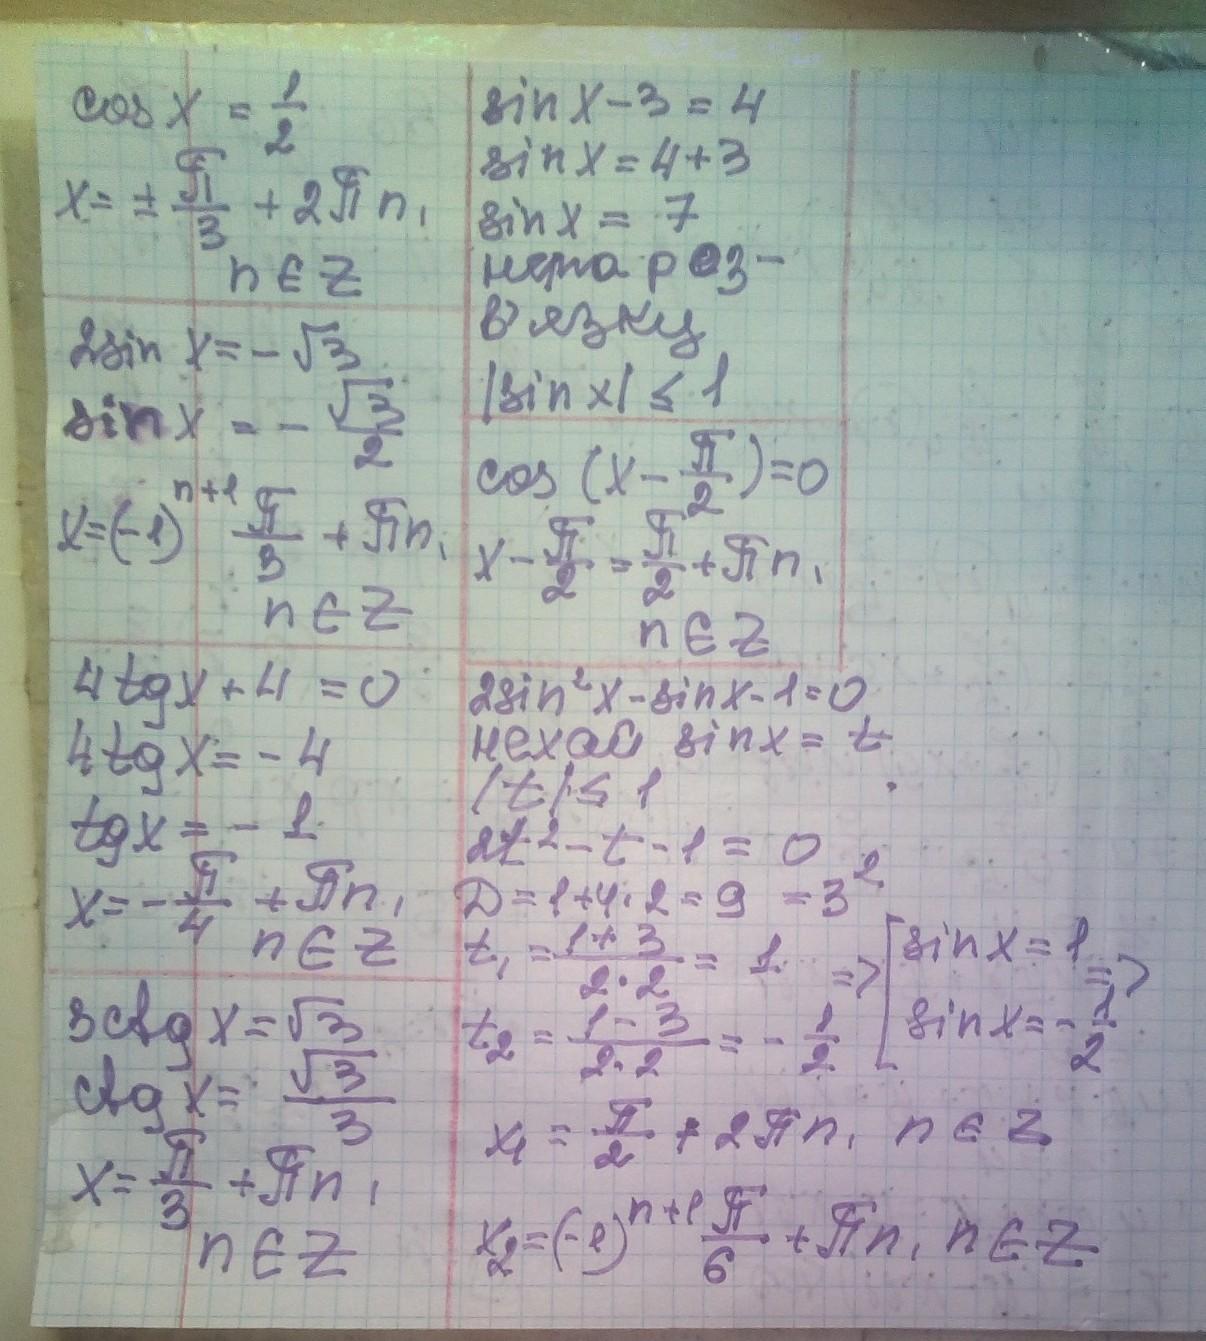 cos x = 1/2
x = ± π/3 + 2πn,
n ∈ Z
2sin x = - √3
sin x = - √3/2
x = (-1)^(n+1) π/3 + πn,
n ∈ Z
4tgx + 4 = 0
4tgx = - 4
tgx = - 1
x = - π/4 + πn,
n ∈ Z
3ctg x = √3
ctg x = √3/3
x = π/3 + πn,
n ∈ Z
sin x - 3 = 4
sin x = 4 + 3
sin x = 7
нема роз-
в'язку
|sin x| ≤ 1
cos (x - π/2) = 0
x - π/2 = π/2 + πn,
n ∈ Z
2sin²x - sinx - 1 = 0
нехай sinx = t
|t| ≤ 1
2t² - t - 1 = 0
D = 1 + 4·2 = 9 = 3²
t₁ = (1+3)/(2·2) = 1 => [ sin x = 1
t₂ = (1-3)/(2·2) = - 1/2 [ sin x = - 1/2 =>
x₁ = π/2 + 2πn, n ∈ Z
x₂ = (-1)^(n+1) π/6 + πn, n ∈ Z